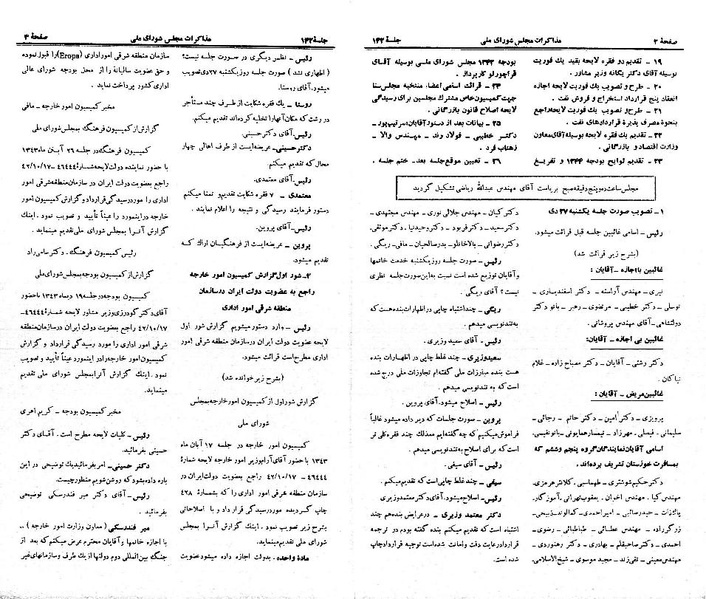 صفحهٔ ۲ مذاکرات مجلس شورای ملی جلسهٔ ۱۴۲
۱۹ - تقدیم دو فقره لایحه بقید یک فوریت
بوسیله آقای دکتر یگانه وزیر مشاور .
۲۰ - طرح و تصویب یک فوریت لایحه اجازه
انعقاد پنج قرارداد استخراج و فروش نفت .
۲۱ - طرح و تصویب یک فوریت لایحه راجع
بنحوه مصرف پذیرهٔ قراردادهای نفت .
۲۲ - تقدیم یک فقره لایحه بوسیله آقای معاون
وزارت اقتصاد و بازرگانی .
۲۳ - تقدیم لوایح بودجه ۱۳۴۴ و تفریغ
بودجه ۱۳۴۳ مجلس شورای ملی بوسیله آقای
قراچورلو کارپرداز .
۲۴ - قرائت اسامی اعضاء منتخبه مجلس سنا
جهت کمیسیون خاص مشترک مجلسین برای رسیدگی
لایحه اصلاح قانون بازرگانی .
۲۵ - بیانات بعد از دستور آقایان: سرتیپ پور -
دکتر خطیبی - فولاد وند - مهندس والا -
رهتاب فرد .
۲۶ - تعیین موقع جلسه بعد - ختم جلسه .
مجلس ساعت ده و پنج دقیقه صبح بریاست آقای مهندس عبدالله ریاضی تشکیل گردید
۱ - تصویب صورت جلسه یکشنبه ۲۷ دی
رئیس - اسامی غائبین جلسه قبل قرائت میشود.
(بشرح زیر قرائت شد)
غائبین با اجازه - آقایان :
نیری - مهندس آراسته - دکتر اسفندیاری -
توسلی - دکتر خطیبی - مرتضوی - رهبر - بانو دکتر
دولتشاهی - آقای مهندس پروشانی .
غائبین بی اجازه - آقایان:
دکتر رشتی - آقایان - دکتر مصباح زاده - غلام
نیاکان .
غائبین مریض - آقایان :
پرویزی - دکتر امین - دکتر حاتم - رجائی -
سلیمانی - فیصلی - مهرزاد - تیمسار همایونی - بانو نفیسی .
اسامی آقایان نمایندگان گروه پنجم و ششم که
بمسافرت خوزستان تشریف برده‌اند .
دکتر حکیم شوشتری - طهماسبی - کلانتر هرمزی
مهندس کیا - مهندس اخوان - یعقوب تهرانی - آموزگار -
دکتر کیان - مهندس جلالی نوری - مهندس مجتهدی -
دکتر سعید - دکتر فربود - دکتر وحیدنیا - دکتر موثقی -
دکتر رضوانی - بالاخانلو - بدرصالحیان - مافی - ریگی .
رئیس - صورت جلسه روز یکشنبه خدمت خانمها
و آقایان توزیع شده است نسبت به این صورت جلسه نظری
نیست؟ آقای ریگی .
ریگی - چند اشتباه چاپی در اظهارات بنده هست که
به تندنویسی میدهم .
رئیس - آقای سعید وزیری .
سعید وزیری - چند غلط چاپی در اظهارات بنده
هست بنده مبارزات ملی گفته‌ام تجاوزات ملی درج شده
است که به تندنویسی میدهم .
رئیس - اصلاح میشود. آقای پروین .
پروین - صورت جلسات که دیر داده میشود غالباً
فراموش میکنیم که چه گفته‌ایم معذلک چند فقره غلطی تر
است که برای اصلاح به تندنویسی میدهم .
رئیس - آقای سیفی .
سیفی - چند غلط چاپی است که تقدیم میکنم .
رئیس - اصلاح میشود، آقای دکتر معتمد وزیری .
دکتر معتمد وزیری - در عرایض بنده هم چند
اشتباه است که تقدیم میکنم
جلسهٔ ۱۴۲ مذاکرات مجلس شورای ملی صفحهٔ ۳
رئیس - نظر دیگری در صورت جلسه نیست؟
(اظهاری نشد) صورت جلسه روز یکشنبه ۲۷ دی تصویب
میشود. آقای روستا .
روستا - یک فقره شکایت از طرف چند مستأجر
در رشت که مکان آنها را تخلیه کرده‌اند تقدیم میکنم .
رئیس - آقای دکتر حسینی .
دکتر حسینی - عریضه‌ایست از طرف اهالی چهار
محال که تقدیم میکنم .
رئیس - آقای معتمدی .
معتمدی - ۷ فقره شکایت تقدیم و تمنا میکنم
دستور فرمایند رسیدگی و نتیجه را اعلام نمایند .
رئیس - آقای پروین .
پروین - عریضه‌ایست از فرهنگیان اراک که تقدیم
میشود .
۲ - شور اول گزارش کمیسیون امور خارجه
راجع به عضویت دولت ایران در سازمان
منطقه شرقی امور اداری
رئیس - وارد دستور میشویم گزارش شور اول
لایحه عضویت دولت ایران در سازمان منطقه شرقی امور
اداری مطرح است قرائت میشود.
(بشرح زیر خوانده شد)
گزارش شور اول از کمیسیون امور خارجه به مجلس
شورای ملی
کمیسیون امور خارجه در جلسه ۱۷ آبان ماه
۱۳۴۳ با حضور آقای آرام وزیر امور خارجه لایحهٔ شمارهٔ
۴۶۴۴۴ - ۴۲/۱۰/۱۷ راجع بعضویت دولت ایران در
سازمان منطقه شرقی امور اداری را که بشماره ۴۲۸
چاپ گردیده مورد رسیدگی قرار داد و با اصلاحاتی
بشرح زیر تصویب نمود . اینک گزارش آنرا بمجلس
شورای ملی تقدیم مینماید.
ماده واحده . بدولت اجازه داده میشود عضویت
سازمان منطقه شرقی امور اداری (Eropa) را قبول نموده
و حق عضویت سالیانه را از محل بودجه شورای عالی
اداری کشور پرداخت نماید .
مخبر کمیسیون امور خارجه - مافی
گزارش از کمیسیون فرهنگ به مجلس شورای ملی
کمیسیون فرهنگ در جلسه ۲۶ آبان ماه ۱۳۴۳
با حضور نماینده دولت لایحه شماره ۴۶۴۴۴ - ۴۲/۱۰/۱۷
راجع بعضویت دولت ایران در سازمان منطقه شرقی امور
اداری را مورد رسیدگی قرار داد و گزارش کمیسیون امور
خارجه در اینمورد را عیناً تأیید و تصویب نمود . اینک
گزارش آنرا بمجلس شورای ملی تقدیم مینماید .
رئیس کمیسیون فرهنگ - دکتر سامی راد
گزارش از کمیسیون بودجه بمجلس شورای ملی
کمیسیون بودجه در جلسه ۱۹ دیماه ۱۳۴۳ با حضور
آقای دکتر کورس وزیر مشاور لایحه شمارهٔ ۴۶۴۴۴ -
۴۲/۱۰/۱۷ راجع بعضویت دولت ایران در سازمان منطقه
شرقی امور اداری را مورد رسیدگی قرار داد و گزارش
کمیسیون امور خارجه در اینمورد عیناً تأیید و تصویب
نمود . اینک گزارش آنرا بمجلس شورای ملی تقدیم
مینماید.
مخبر کمیسیون بودجه - کریم اهری
رئیس - کلیات لایحه مطرح است . آقای دکتر
حسینی بفرمائید .
دکتر حسینی - امر بفرمائید یک توضیحی در این
باره داده بشود که روشن بشویم منظور چیست .
رئیس - آقای دکتر میر فندرسکی توضیحی
بفرمائید .
میر فندرسکی (معاون وزارت امور خارجه) -
با اجازه خانمها و آقایان محترم عرض میکنم که بعد از
جنگ بین‌المللی دوم دولتها از یک طرف و سازمانهای غیر